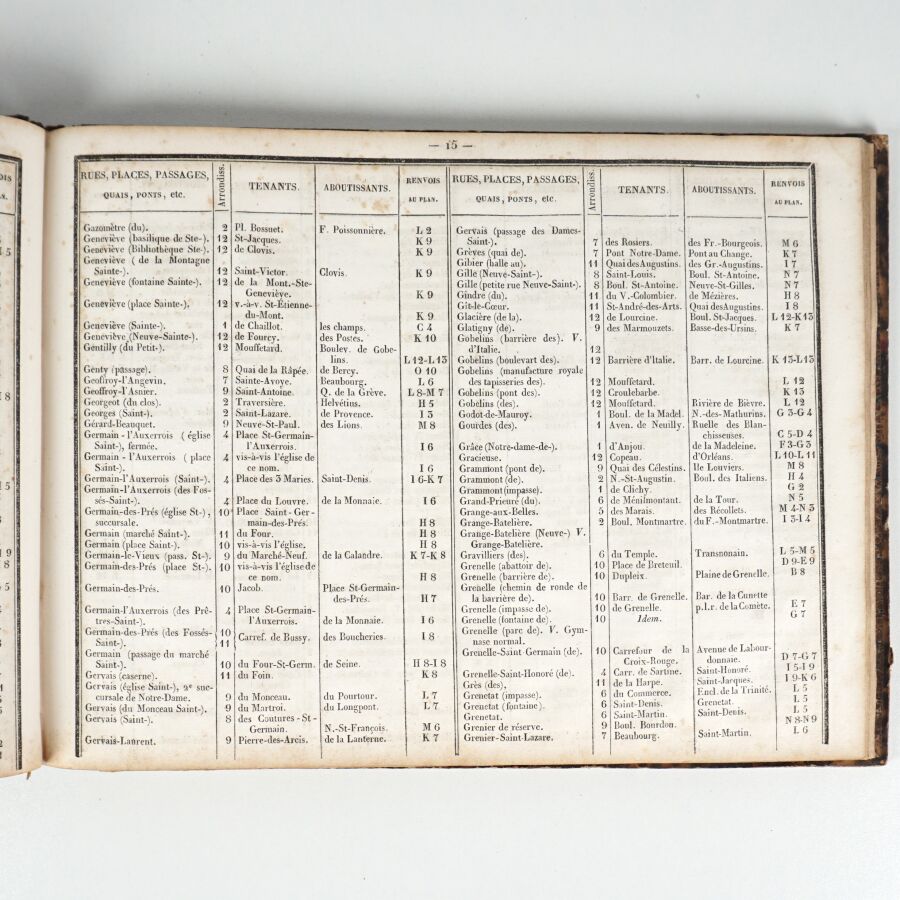 — 15 —
RUES, PLACES, PASSAGES, QUAIS, PONTS, etc. Arrondiss. TENANTS. ABOUTISSANTS. RENVOIS AU PLAN.
Gazomètre (du). 2 Pl. Bossuet. F. Poissonnière. L 2
Geneviève (basilique de Ste-). 12 St-Jacques. K 9
Geneviève (Bibliothèque Ste-). 12 de Clovis. K 9
Geneviève (de la Montagne
Sainte-). 12 Saint-Victor. Clovis. K 9
Geneviève (fontaine Sainte-). 12 de la Mont.-Ste-
Geneviève. K 9
Geneviève (place Sainte-). 12 v.-à-v. St-Étienne-
du-Mont. K 9
Geneviève (Sainte-). 1 de Chaillot. les champs. C 4
Geneviève (Neuve-Sainte-). 12 de Fourcy. des Postes. K 10
Gentilly (du Petit-). 12 Mouffetard. Boulev. de Gobe-
lins. L 12-L 13
Genty (passage). 8 Quai de la Râpée. de Bercy. O 10
Geoffroy-l'Angevin. 7 Sainte-Avoye. Beaubourg. L 6
Geoffroy-l'Asnier. 9 Saint-Antoine. Q. de la Grève. L 8-M 7
Georgeot (du clos). 2 Traversière. Helvétius. H 5
Georges (Saint-). 2 Saint-Lazare. de Provence. I 3
Gérard-Beauquet. 9 Neuve-St-Paul. des Lions. M 8
Germain-l'Auxerrois (église 4 Place St-Germain-
Saint-), fermée. l'Auxerrois. I 6
Germain-l'Auxerrois (place 4 vis-à-vis l'église de
Saint-). ce nom. I 6
Germain-l'Auxerrois (Saint-). 4 Place des 3 Maries. Saint-Denis. I 6-K 7
Germain-l'Auxerrois (des Fos-
sés-Saint-). 4 Place du Louvre. de la Monnaie. I 6
Germain-des-Prés (église St-), 10 Place Saint-Ger-
succursale. main-des-Prés. H 8
Germain (marché Saint-). 11 du Four. H 8
Germain (place Saint-). 10 vis-à-vis l'église. H 8
Germain-le-Vieux (pass. St-). 9 du Marché-Neuf. de la Calandre. K 7-K 8
Germain-des-Prés (place St-). 10 vis-à-vis l'église de
ce nom. H 8
Germain-des-Prés. 10 Jacob. Place St-Germain-
des-Prés. H 7
Germain-l'Auxerrois (des Prê- 4 Place St-Germain-
tres-Saint-). l'Auxerrois. de la Monnaie. I 6
Germain-des-Prés (des Fossés- 10
Saint-). 11 Carref. de Bussy. des Boucheries. I 8
Germain (passage du marché
Saint-). 10 du Four-St-Germ. de Seine. H 8-I 8
Gervais (caserne). 11 du Foin. K 8
Gervais (église Saint-), 2e suc-
cursale de Notre-Dame. 9 du Monceau. du Pourtour. L 7
Gervais (du Monceau Saint-). 9 du Martroi. du Longpont. L 7
Gervais (Saint-). 8 des Coutures-St-
Germain. N.-St-François. M 6
Gervais-Laurent. 9 Pierre-des-Arcis. de la Lanterne. K 7
RUES, PLACES, PASSAGES, QUAIS, PONTS, etc. Arrondiss. TENANTS. ABOUTISSANTS. RENVOIS AU PLAN.
Gervais (passage des Dames-
Saint-). 7 des Rosiers. des Fr.-Bourgeois. M 6
Grèves (quai de). 7 Pont Notre-Dame. Pont au Change. K 7
Gibier (halle au). 11 Quai des Augustins. des Gr.-Augustins. I 7
Gille (Neuve-Saint-). 8 Saint-Louis. Boul. St-Antoine. N 7
Gille (petite rue Neuve-Saint-). 8 Boul. St-Antoine. Neuve-St-Gilles. N 7
Gindre (du). 11 du V.-Colombier. de Mézières. H 8
Gît-le-Cœur. 11 St-André-des-Arts. Quai des Augustins. I 8
Glacière (de la). 12 de Lourcine. Boul. St-Jacques. L 12-K 13
Glatigny (de). 9 des Marmouzets. Basse-des-Ursins. K 7
Gobelins (barrière des). V.
d'Italie. 12
Gobelins (boulevart des). 12 Barrière d'Italie. Barr. de Lourcine. K 13-L 13
Gobelins (manufacture royale
des tapisseries des). 12 Mouffetard. L 12
Gobelins (pont des). 12 Croulebarbe. K 13
Gobelins (des). 12 Mouffetard. Rivière de Bièvre. L 12
Godot-de-Mauroy. 1 Boul. de la Madel. N.-des-Mathurins. G 3-G 4
Gourdes (des). 1 Aven. de Neuilly. Ruelle des Blan-
chisseuses. C 5-D 4
Grâce (Notre-dame-de-). 1 d'Anjou. de la Madeleine. F 3-G 3
Gracieuse. 12 Copeau. d'Orléans. L 10-L 11
Grammont (pont de). 9 Quai des Célestins. Ile Louviers. M 8
Grammont (de). 2 N.-St-Augustin. Boul. des Italiens. H 4
Grammont (impasse). 1 de Clichy. G 2
Grand-Prieuré (du). 6 de Ménilmontant. de la Tour. N 5
Grange-aux-Belles. 5 des Marais. des Récollets. M 4-N 3
Grange-Batelière. 2 Boul. Montmartre. du F.-Montmartre. I 3-I 4
Grange-Batelière (Neuve-) V.
Grange-Batelière.
Gravilliers (des). 6 du Temple. Transnonain. L 5-M 5
Grenelle (abattoir de). 10 Place de Breteuil. D 9-E 9
Grenelle (barrière de). 10 Dupleix. Plaine de Grenelle. B 8
Grenelle (chemin de ronde de
la barrière de). 10 Barr. de Grenelle. Bar. de la Cunette
Grenelle (impasse de). 10 de Grenelle. p.l.r. de la Comète. E 7
Grenelle (fontaine de). 10 Idem. G 7
Grenelle (parc de). V. Gym-
nase normal.
Grenelle-Saint-Germain (de). 10 Carrefour de la Avenue de Labour-
Croix-Rouge. donnaie. D 7-G 7
Grenelle-Saint-Honoré (de). 4 Carr. de Sartine. Saint-Honoré. I 5-I 9
Grès (des). 11 de la Harpe. Saint-Jacques. I 9-K 6
Grenetat (impasse). 6 du Commerce. Encl. de la Trinité. L 5
Grenetat (fontaine). 6 Saint-Denis. Grenetat. L 5
Grenetat. 6 Saint-Martin. Saint-Denis. L 5
Grenier de réserve. 9 Boul. Bourdon. N 8-N 9
Grenier-Saint-Lazare. 7 Beaubourg. Saint-Martin. L 6